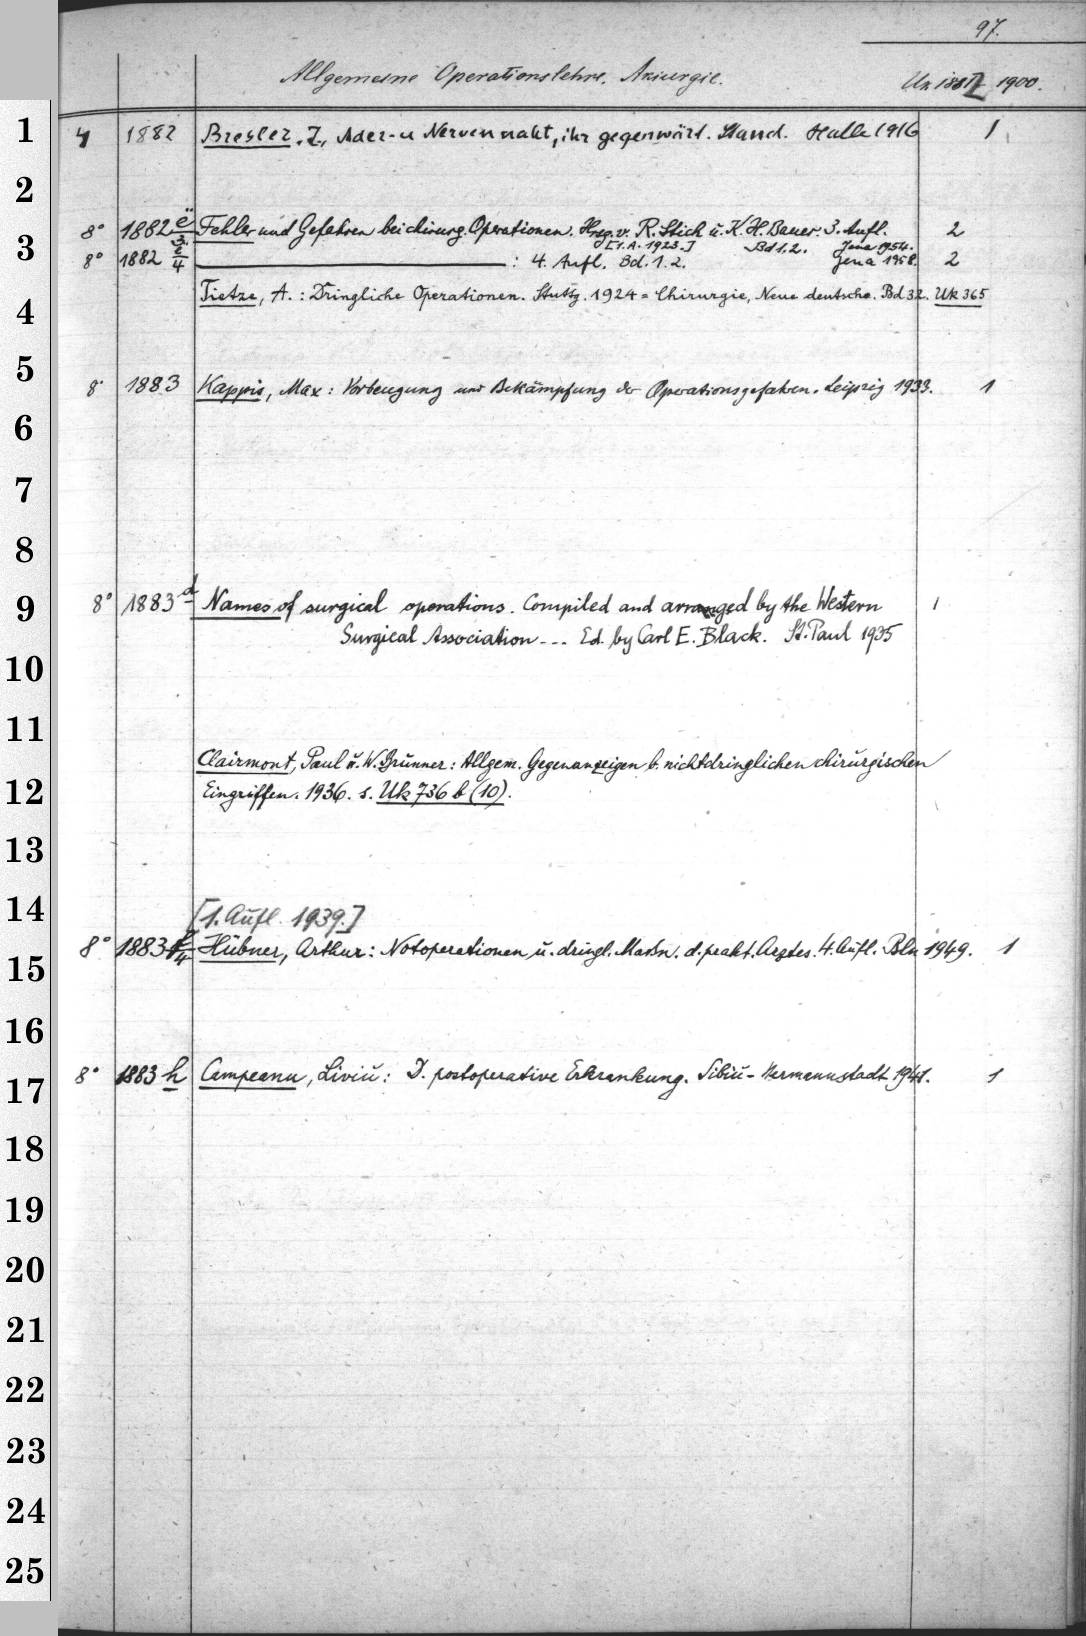 97.
Allgemeine Operationslehre. Akiurgie. Uk 1881 - 1900.
1 4 1882 Bresler, J., Ader- u Nervennaht, ihr gegenwärt. Stand. Halle 1916 1
2
8° 1882 e/3. Fehler und Gefahren bei chirurg. Operationen. Hrsg. v. R. Stich u. K. H. Bauer. 3. Aufl. 2
3 [1. A. 1923.] Bd 1.2. Jena 1954.
8° 1882 e/4 ——— : 4. Aufl. Bd. 1. 2. Jena 1958. 2
Tietze, A. : Dringliche Operationen. Stuttg. 1924 = Chirurgie, Neue deutsche. Bd 32. Uk 365
4
5
8° 1883 Kappis, Max : Vorbeugung und Bekämpfung der Operationsgefahren. Leipzig 1933. 1
6
7
8
9 8° 1883 d Names of surgical operations. Compiled and arranged by the Western 1
Surgical Association --- Ed. by Carl E. Black. St. Paul 1935
10
11
Clairmont, Paul u. W. Brunner : Allgem. Gegenanzeigen b. nichtdringlichen chirurgischen
12 Eingriffen. 1936. s. Uk 736 b (10).
13
14 [1. Aufl. 1939.]
8° 1883 f/4 Hübner, Arthur : Notoperationen u. dringl. Maßn. d. prakt. Arztes. 4. Aufl. Bln 1949. 1
15
16
8° 1883 h Campeanu, Liviu : D. postoperative Erkrankung. Sibiu - Hermannstadt 1941. 1
17
18
19
20
21
22
23
24
25